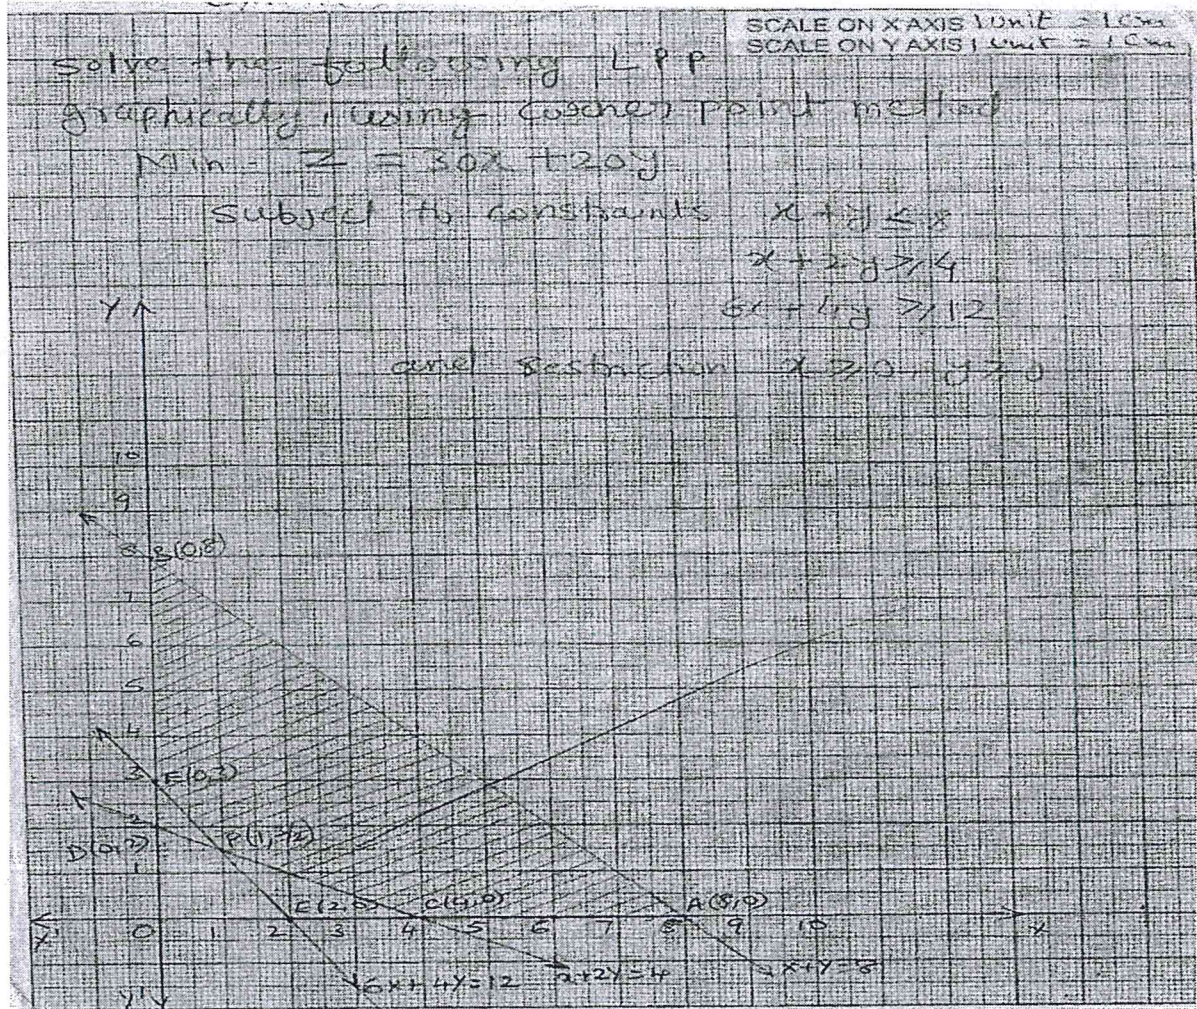 SCALE ON X AXIS 1 unit = 1 cm
SCALE ON Y AXIS 1 unit = 1 cm
Solve the following LPP
graphically, using corner point method
Min Z = 30x + 20y
Subject to constraints x + y ≤ 8
x + 2y ≥ 4
6x + 4y ≥ 12
and restriction x ≥ 0, y ≥ 0
Y
10
9
8 B(0,8)
7
6
5
4
3 F(0,3)
2
D(0,2) P(1,3/2)
1
E(2,0) C(4,0) A(8,0)
X' 0 1 2 3 4 5 6 7 8 9 10 x
6x+4y=12 x+2y=4 x+y=8
Y'